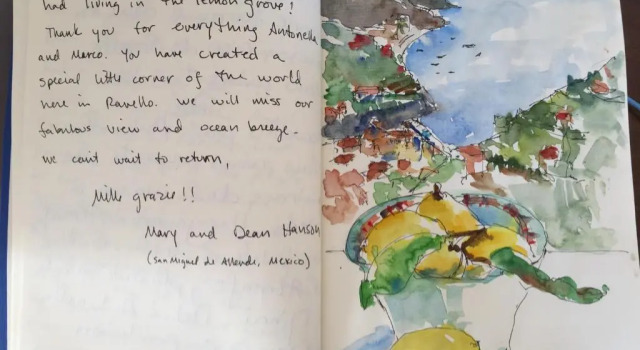 had living in the lemon grove!
Thank you for everything Antonella
and Marco. You have created a
special little corner of the world
here in Ravello. We will miss our
fabulous view and ocean breeze.
We can't wait to return,
Mille grazie!!
Mary and Dean Hanson
(San Miguel de Allende, Mexico)